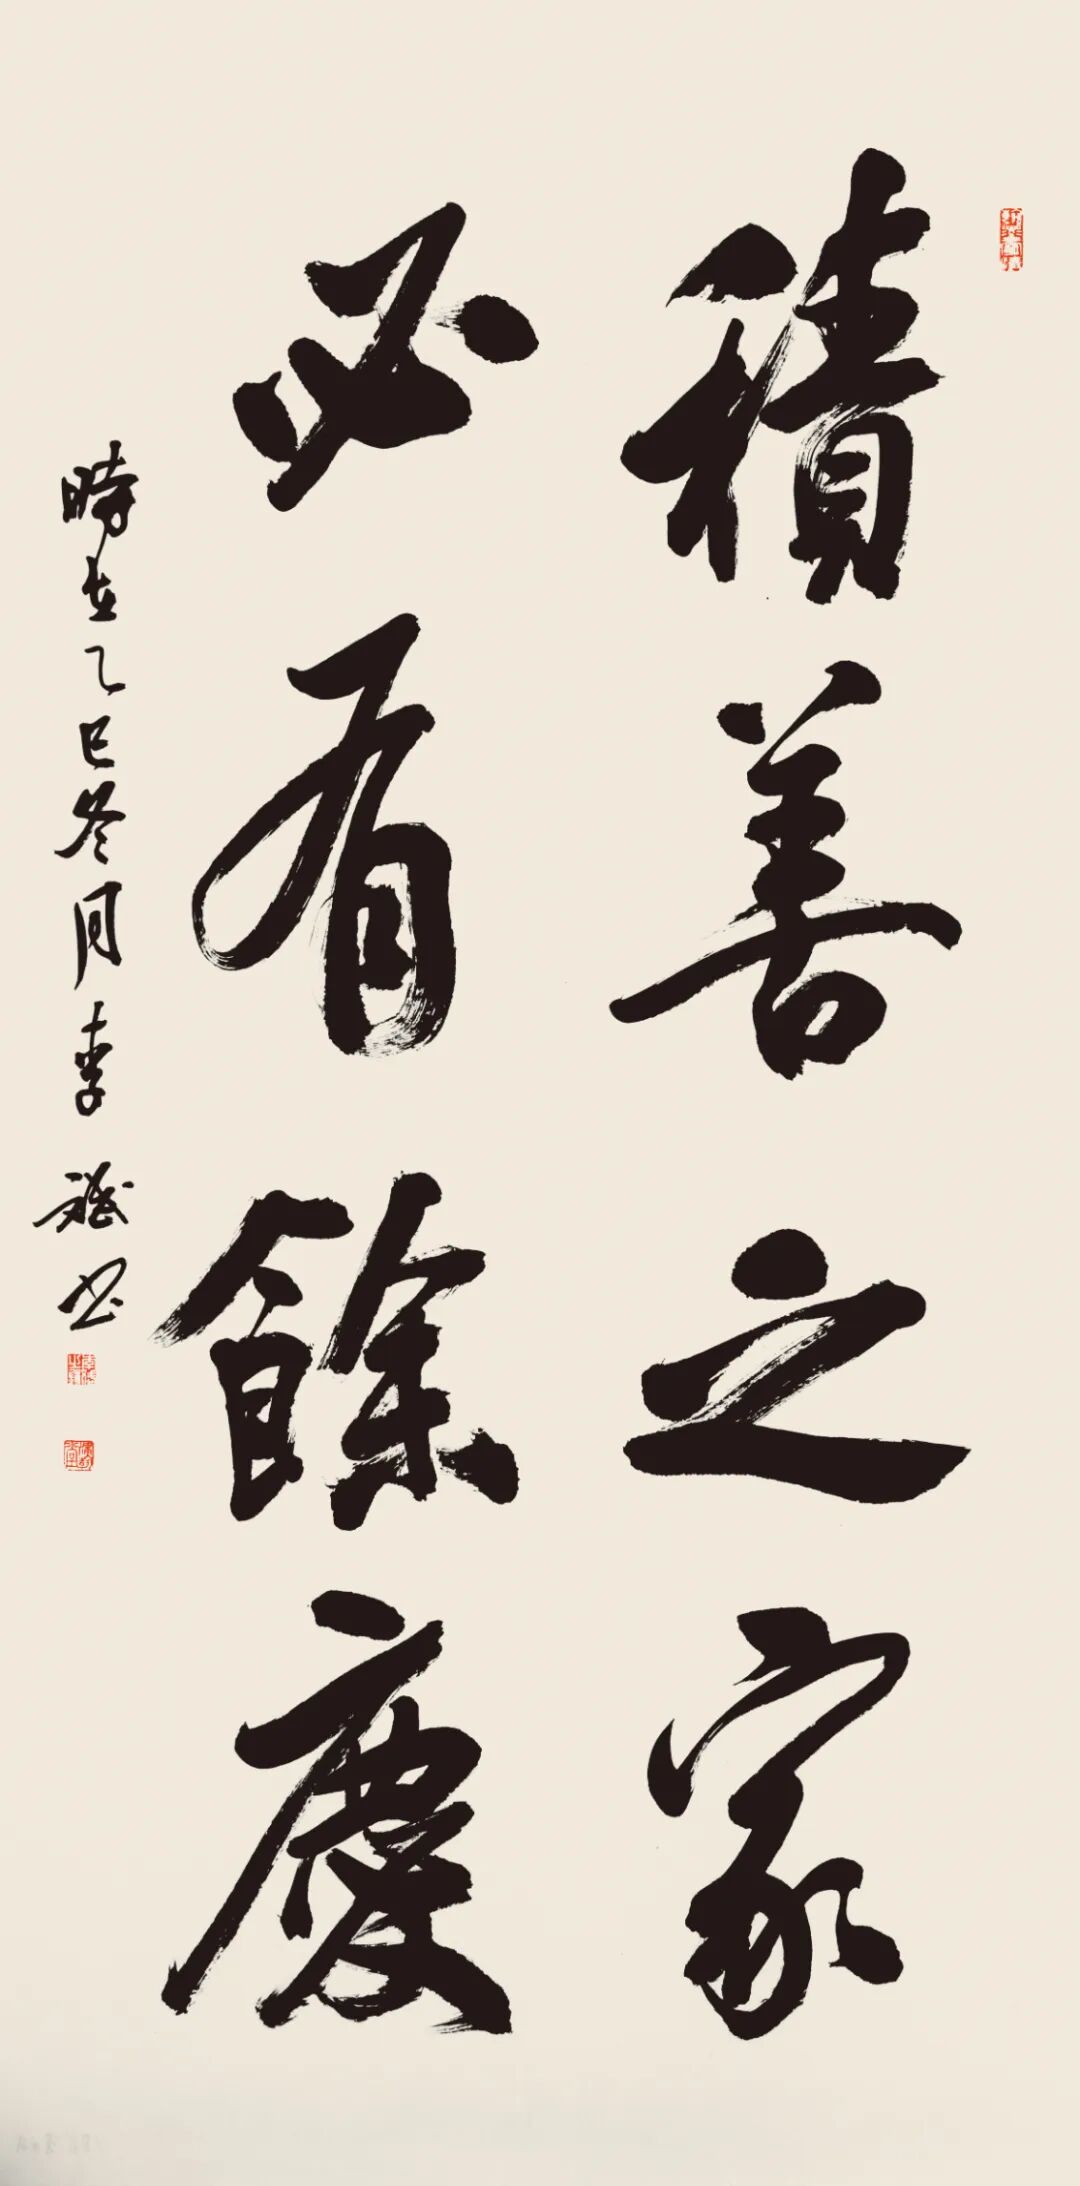 積善之家
必有餘慶
時在乙巳冬月李斌書